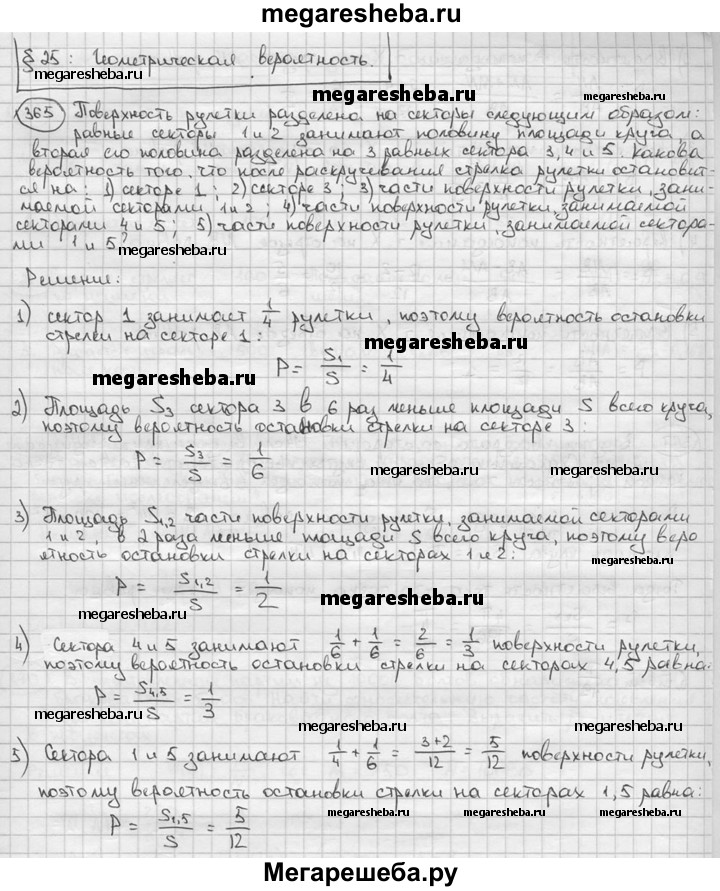 megaresheba.ru
§ 25: Геометрическая вероятность.
megaresheba.ru
megaresheba.ru
365 Поверхность рулетки разделена на секторы следующим образом:
равные секторы 1 и 2 занимают половину площади круга, а
вторая его половина разделена на 3 равных сектора 3, 4 и 5. Какова
вероятность того, что после раскручивания стрелка рулетки остановит-
ся на: 1) секторе 1; 2) секторе 3; 3) части поверхности рулетки, зани-
маемой секторами 1 и 2; 4) части поверхности рулетки, занимаемой
секторами 4 и 5; 5) части поверхности рулетки, занимаемой сектора-
ми 1 и 5?
megaresheba.ru
Решение:
1) сектор 1 занимает 1/4 рулетки, поэтому вероятность остановки
стрелки на секторе 1:
megaresheba.ru
P = S₁/S = 1/4
megaresheba.ru
2) Площадь S₃ сектора 3 в 6 раз меньше площади S всего круга,
поэтому вероятность остановки стрелки на секторе 3:
P = S₃/S = 1/6
megaresheba.ru
megaresheba.ru
3) Площадь S₁,₂ части поверхности рулетки, занимаемой секторами
1 и 2, в 2 раза меньше площади S всего круга, поэтому веро
ятность остановки стрелки на секторах 1 и 2:
megaresheba.ru
P = S₁,₂/S = 1/2
megaresheba.ru
megaresheba.ru
4) Сектора 4 и 5 занимают 1/6 + 1/6 = 2/6 = 1/3 поверхности рулетки,
поэтому вероятность остановки стрелки на секторах 4,5 равна:
P = S₄,₅/S = 1/3
megaresheba.ru
megaresheba.ru
megaresheba.ru
5) Сектора 1 и 5 занимают 1/4 + 1/6 = 3+2/12 = 5/12 поверхности рулетки,
поэтому вероятность остановки стрелки на секторах 1,5 равна:
P = S₁,₅/S = 5/12
megaresheba.ru
megaresheba.ru
megaresheba.ru
Мегарешеба.ру